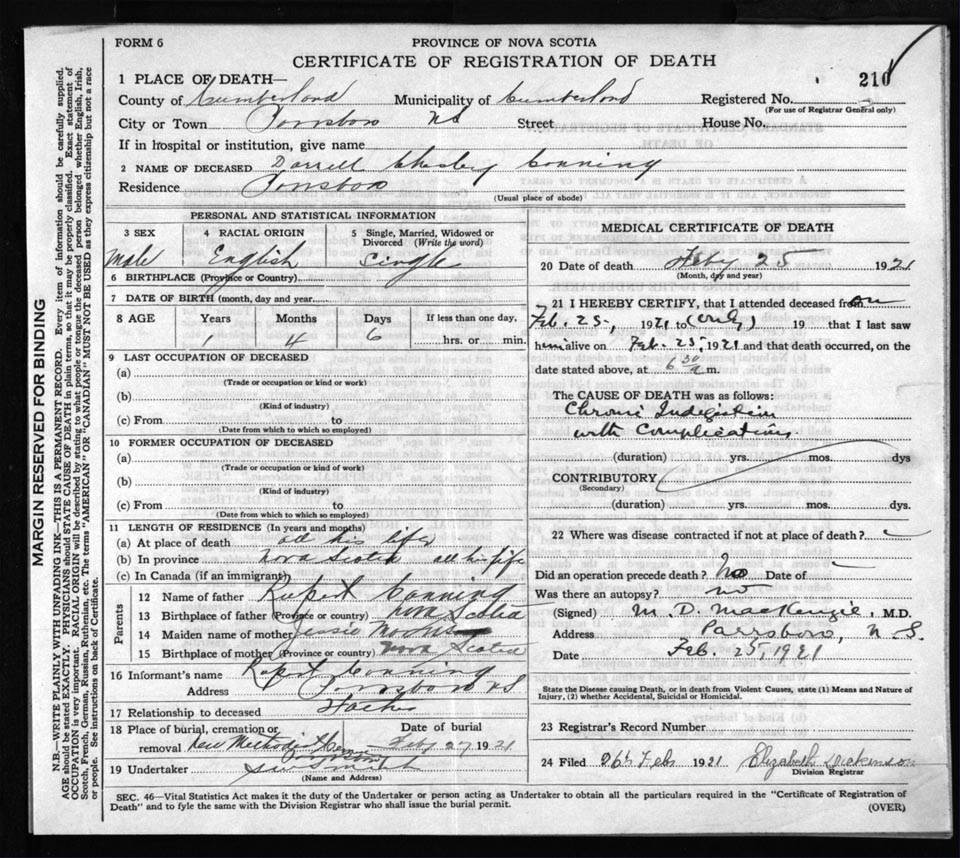 FORM 6
PROVINCE OF NOVA SCOTIA
CERTIFICATE OF REGISTRATION OF DEATH
1 PLACE OF DEATH—
210
County of Cumberland Municipality of Cumberland Registered No.
(For use of Registrar General only)
City or Town Parrsboro NS Street House No.
If in hospital or institution, give name
2 NAME OF DECEASED Darrell Chesley Canning
Residence Parrsboro
(Usual place of abode)
PERSONAL AND STATISTICAL INFORMATION
3 SEX 4 RACIAL ORIGIN 5 Single, Married, Widowed or Divorced (Write the word)
Male English Single
6 BIRTHPLACE (Province or Country)
7 DATE OF BIRTH (month, day and year)
8 AGE Years Months Days If less than one day,
1 4 6 hrs. or min.
9 LAST OCCUPATION OF DECEASED
(a)
(Trade or occupation or kind or work)
(b)
(Kind of industry)
(c) From to
(Date from which to which so employed)
10 FORMER OCCUPATION OF DECEASED
(a)
(Trade or occupation or kind of work)
(b)
(Kind of industry)
(c) From to
(Date from which to which so employed)
11 LENGTH OF RESIDENCE (In years and months)
(a) At place of death all his life
(b) In province Nova Scotia all his life
(c) In Canada (if an immigrant)
Parents
12 Name of father Rupert Canning
13 Birthplace of father (Province or country) Nova Scotia
14 Maiden name of mother Jessie
15 Birthplace of mother (Province or country) Nova Scotia
16 Informant's name Rupert Canning
Address Parrsboro NS
17 Relationship to deceased Father
18 Place of burial, cremation or removal Date of burial
New Methodist Feby 27 1921
19 Undertaker Smith
(Name and Address)
MEDICAL CERTIFICATE OF DEATH
20 Date of death Feby 25 1921
(Month, day and year)
21 I HEREBY CERTIFY, that I attended deceased from on
Feb. 25, 1921 to (only) 19 that I last saw
him alive on Feb. 25, 1921 and that death occurred, on the
date stated above, at 6 30 a m.
The CAUSE OF DEATH was as follows:
Chronic Indigestion
with Complications.
(duration) yrs. mos. dys
CONTRIBUTORY
(Secondary)
(duration) yrs. mos. dys.
22 Where was disease contracted if not at place of death?
Did an operation precede death? No Date of
Was there an autopsy? no
(Signed) M. D. MacKenzie, M.D.
Address Parrsboro, N. S.
Date Feb. 25, 1921
State the Disease causing Death, or in death from Violent Causes, state (1) Means and Nature of
Injury, (2) whether Accidental, Suicidal or Homicidal.
23 Registrar's Record Number
24 Filed 26th Feb 1921 Elizabeth Dickinson
Division Registrar
SEC. 46—Vital Statistics Act makes it the duty of the Undertaker or person acting as Undertaker to obtain all the particulars required in the "Certificate of Registration of
Death" and to fyle the same with the Division Registrar who shall issue the burial permit.
(OVER)
MARGIN RESERVED FOR BINDING
N.B.—WRITE PLAINLY WITH UNFADING INK—THIS IS A PERMANENT RECORD. Every item of information should be carefully supplied.
AGE should be stated EXACTLY. PHYSICIANS should STATE CAUSE OF DEATH in plain terms, so that it may be properly classified. Exact statement of
OCCUPATION is very important. RACIAL ORIGIN will be described by stating to what people or tongue the deceased person belonged whether English, Irish,
Scotch, French, German, Russian, Ruthenian, etc. The terms "AMERICAN" OR "CANADIAN" MUST NOT BE USED as they express citizenship but not a race
or people. See instructions on back of Certificate.